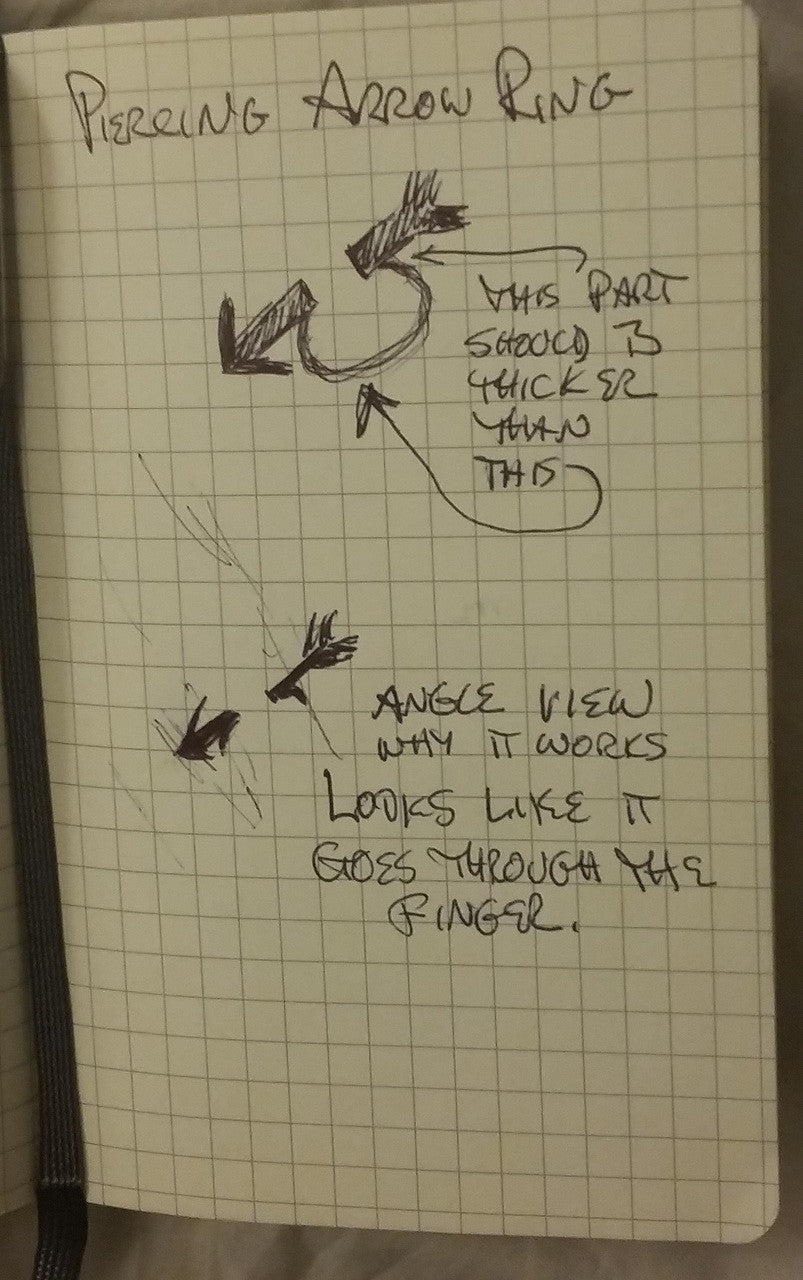 PIERCING ARROW RING
THIS PART
SHOULD B
THICKER
THAN
THIS
ANGLE VIEW
WHY IT WORKS
LOOKS LIKE IT
GOES THROUGH THE
FINGER.